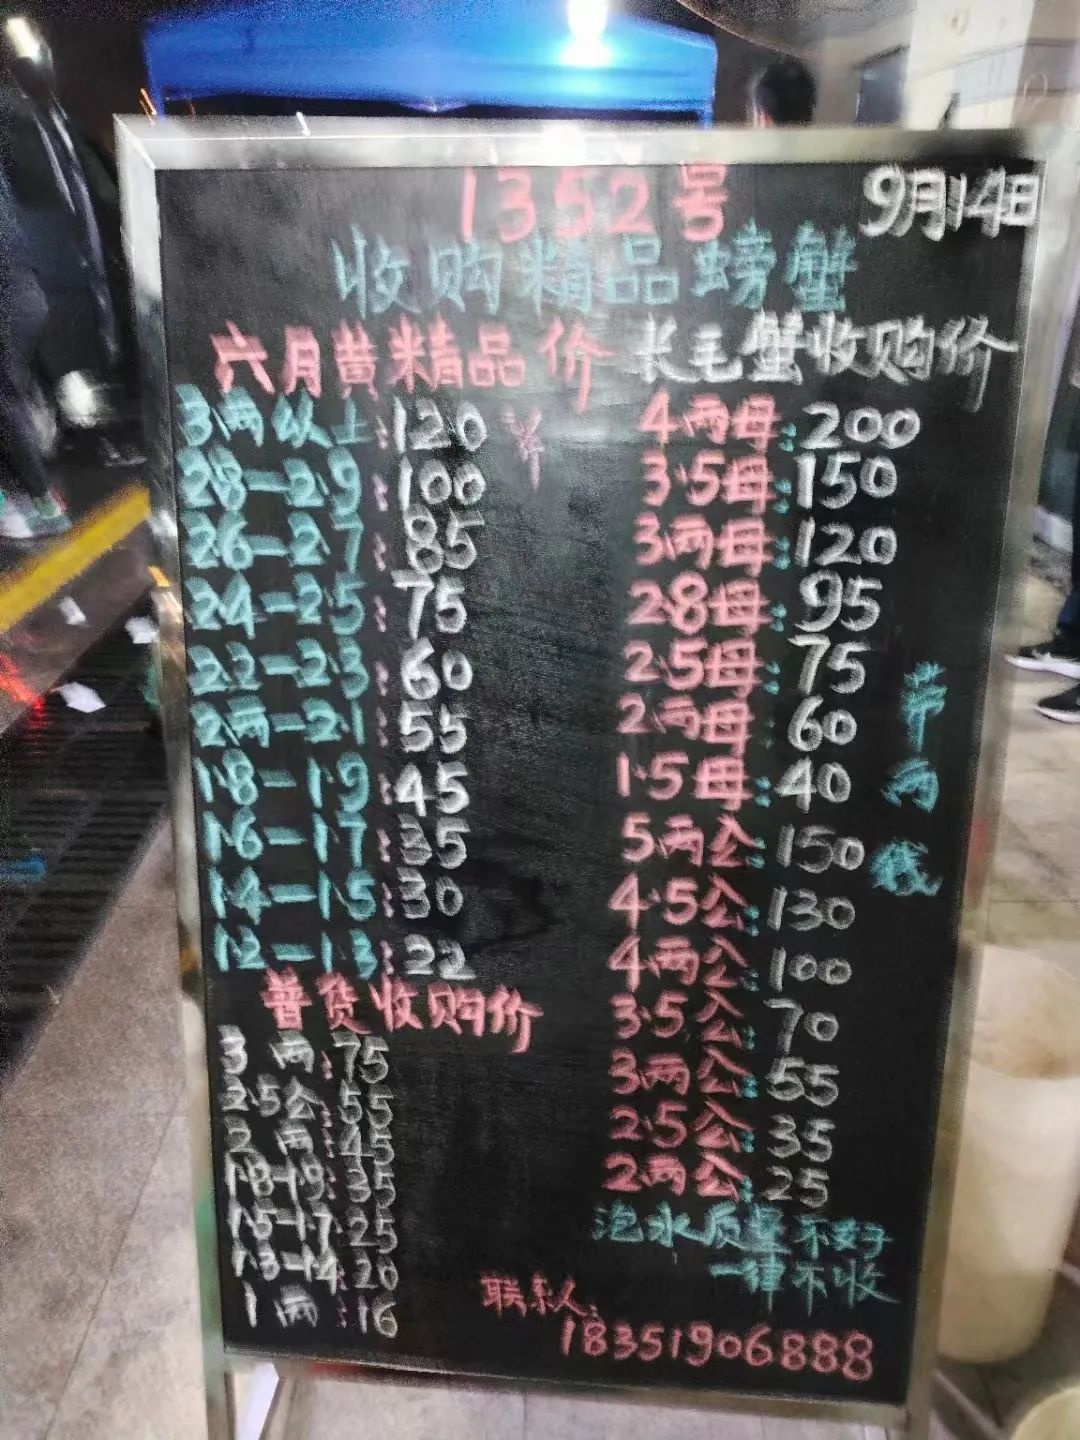 1352号
9月14日
收购精品螃蟹
六月黄精品价
3两以上:120 ¥
2.8-2.9:100
2.6-2.7:85
2.4-2.5:75
2.2-2.3:60
2两-2.1:55
1.8-1.9:45
1.6-1.7:35
1.4-1.5:30
1.2-1.3:22
普货收购价
3两:75
2.5公:55
2两:45
1.8-1.9:35
1.5-1.7:25
1.3-1.4:20
1两:16
长毛蟹收购价
4两母:200
3.5母:150
3两母:120
2.8母:95
2.5母:75
2两母:60
1.5母:40
5两公:150
4.5公:130
4两公:100
3.5公:70
3两公:55
2.5公:35
2两公:25
带两钱
泡水质量不好
一律不收
联系人:
18351906888